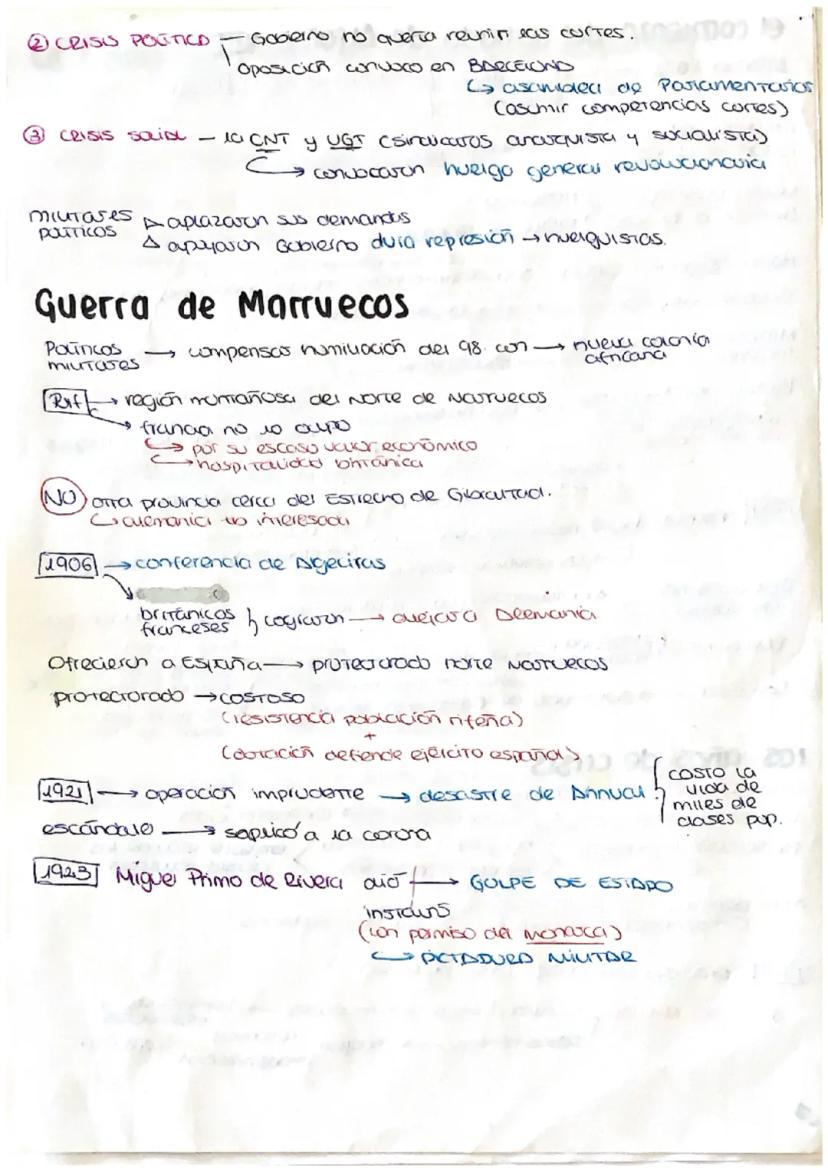 ② CRISIS POLÍTICA — Gobierno no quería reunir las cortes.
oposición convoco en BARCELONA
↳ asamblea de Parlamentarios
(asumir competencias cortes)
③ CRISIS SOCIAL — la CNT y UGT (sindicatos anarquista y socialista)
→ convocaron huelga general revolucionaria
militares
políticos
▷ aplazaron sus demandas
△ apoyaron Gobierno dura represión → huelguistas.
Guerra de Marruecos
Políticos
militares → compensas humillación del 98. con → nueva colonia
africana
Rif → región montañosa del Norte de Marruecos
→ francia no lo ocupo
↳ por su escaso valor económico
→ hospitalidad británica
NO otra provincia cerca del Estrecho de Gibraltar.
↳ alemania interesada
1906 → conferencia de Algeciras
británicos
franceses } lograron → alejara Alemania
Ofrecieron a España → protectorado norte Marruecos
protectorado → COSTOSO
(resistencia población rifeña)
+
(dotación defiende ejército español)
1921 → operación imprudente → desastre de Annual { costo la
vida de
miles de
clases pop.
escándalo → salpicó a la corona
1923 Miguel Primo de Rivera dió → GOLPE DE ESTADO
instauró
(con permiso del monarca)
↳ DICTADURA MILITAR